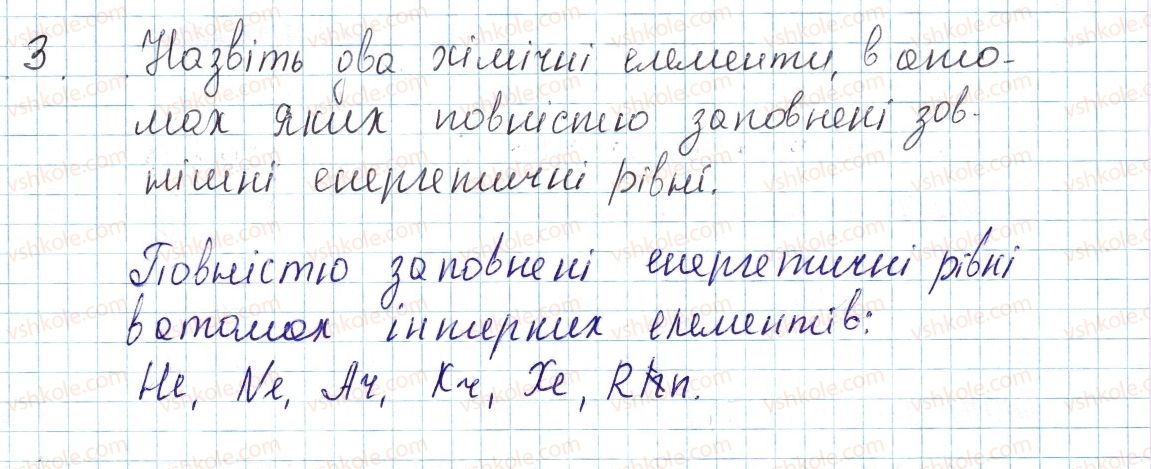 3. Назвіть два хімічні елементи, в ато-
мах яких повністю заповнені зов-
нішні енергетичні рівні.
Повністю заповнені енергетичні рівні
в атомах інтерних елементів:
He, Ne, Ar, Kr, Xe, Rn.